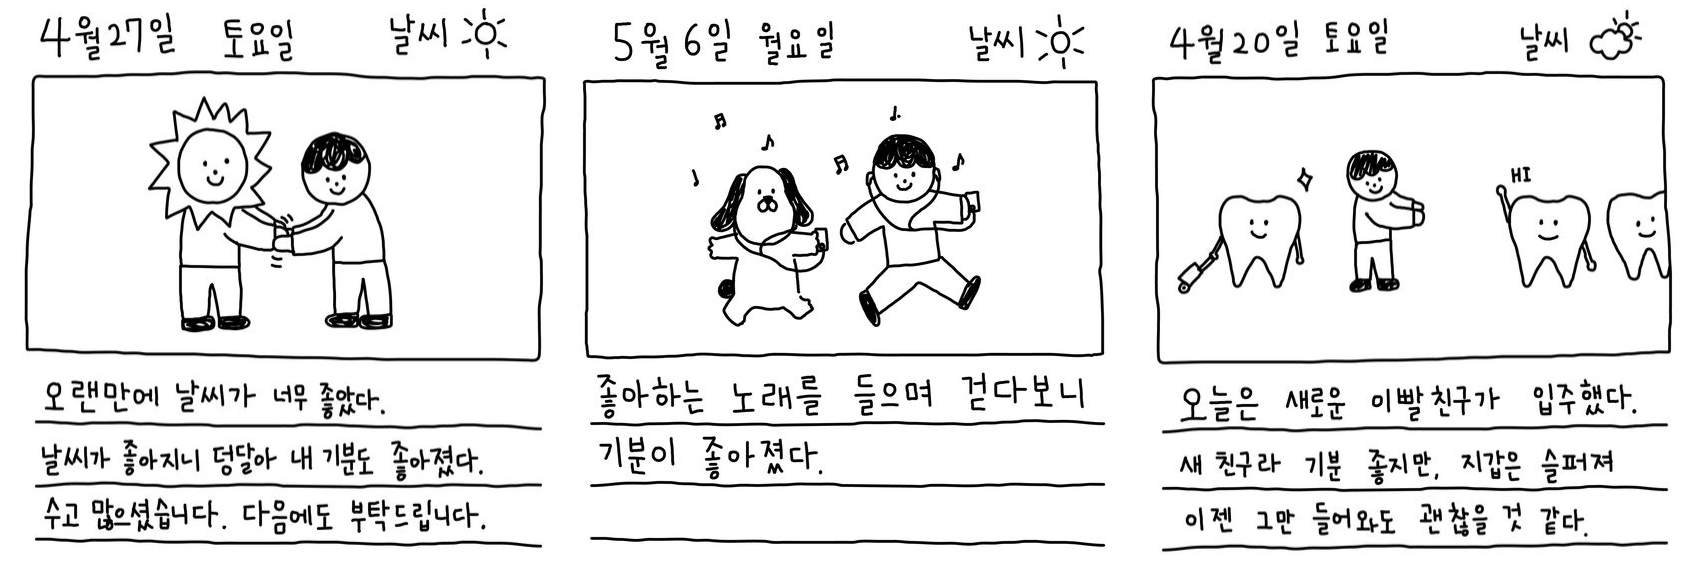 4월27일 토요일 날씨
오랜만에 날씨가 너무 좋았다.
날씨가 좋아지니 덩달아 내 기분도 좋아졌다.
수고 많으셨습니다. 다음에도 부탁드립니다.
5월 6일 월요일 날씨
좋아하는 노래를 들으며 걷다보니
기분이 좋아졌다.
4월20일 토요일 날씨
HI
오늘은 새로운 이빨친구가 입주했다.
새 친구라 기분 좋지만, 지갑은 슬퍼져
이젠 그만 들어와도 괜찮을 것 같다.